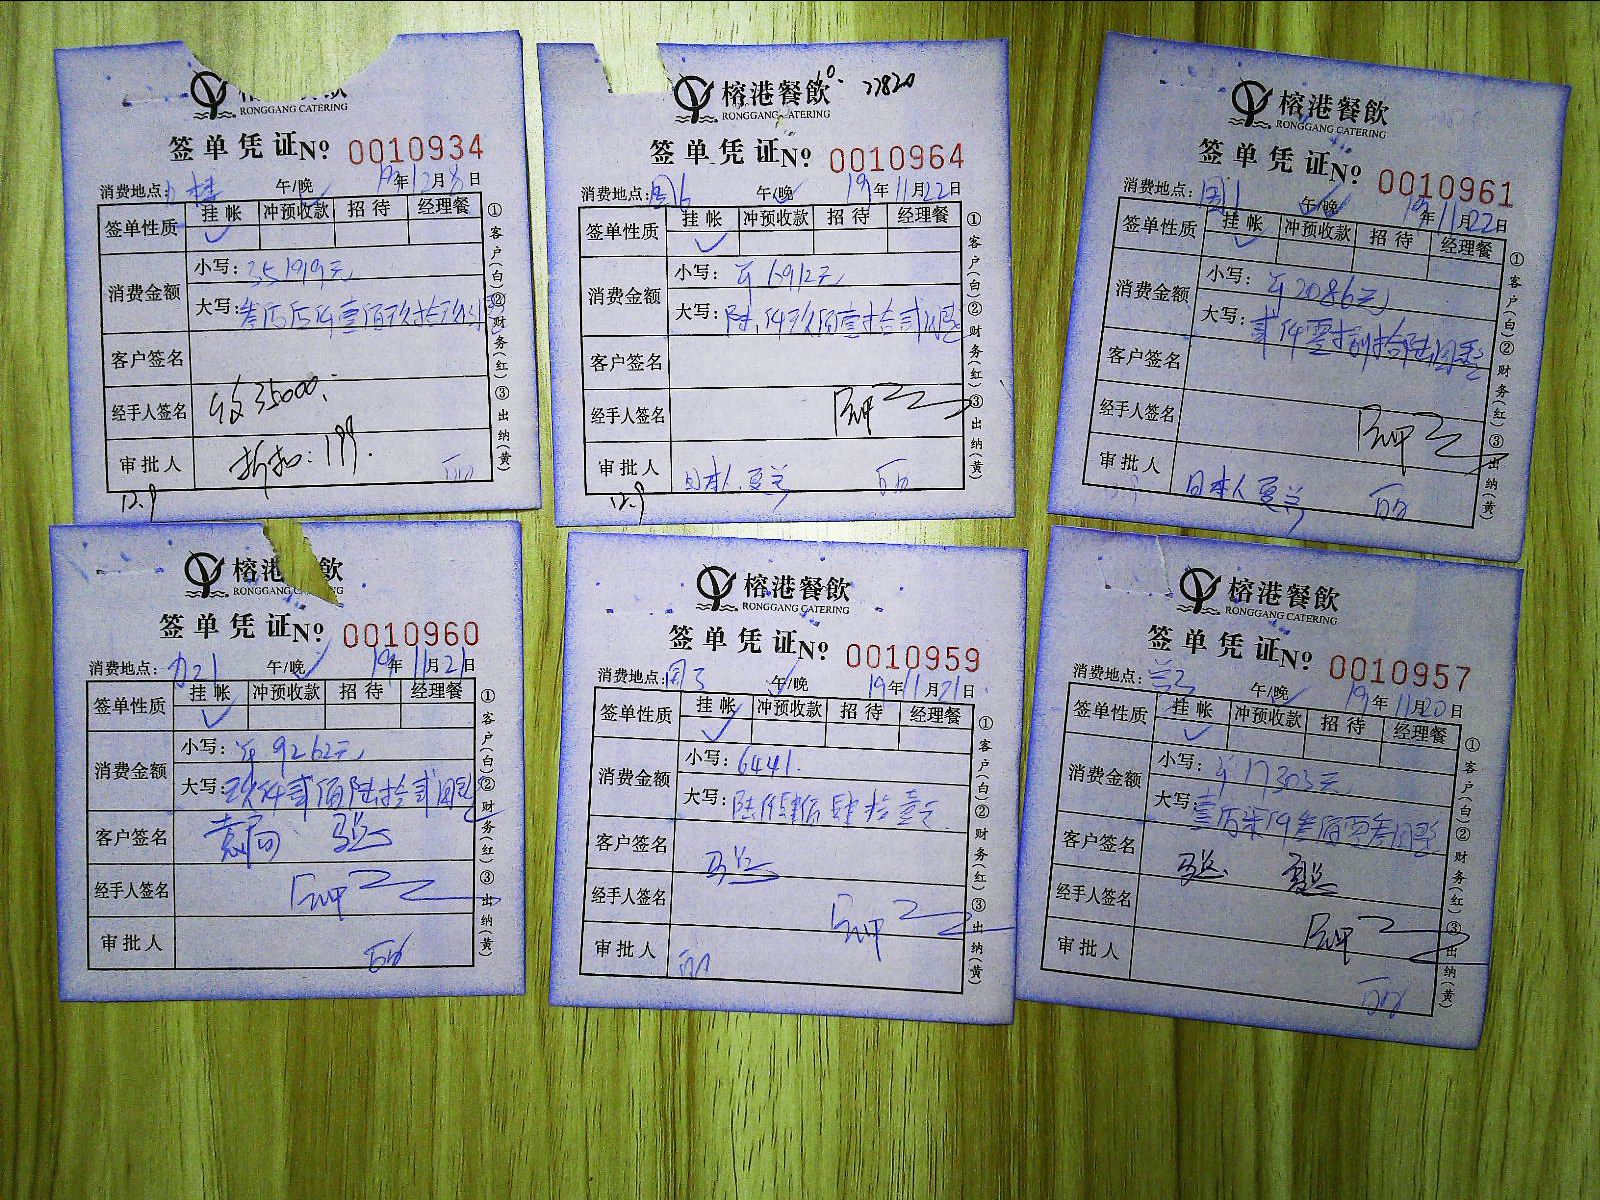 榕港餐飲
RONGGANG CATERING
签单凭证No 0010934
消费地点: 楼 午/晚 19年12月8日
签单性质 挂帐 冲预收款 招待 经理餐
消费金额 小写: 35199元
大写: 叁万伍仟壹佰玖拾玖
客户签名
经手人签名 收35000.
审批人 折扣: 199.
12.9
①客户(白)②财务(红)③出纳(黄)
榕港餐飲 77820
RONGGANG CATERING
签单凭证No 0010964
消费地点: 周16 午/晚 19年11月22日
签单性质 挂帐 冲预收款 招待 经理餐
消费金额 小写: ¥6912元
大写: 陆仟玖佰壹拾贰圆整
客户签名
经手人签名
审批人 日本人
12.9
①客户(白)②财务(红)③出纳(黄)
榕港餐飲
RONGGANG CATERING
签单凭证No 0010961
消费地点: 周1 午/晚 19年11月22日
签单性质 挂帐 冲预收款 招待 经理餐
消费金额 小写: ¥2086元
大写: 贰仟零捌拾陆圆整
客户签名
经手人签名
审批人 日本人
①客户(白)②财务(红)③出纳(黄)
榕港餐飲
RONGGANG CATERING
签单凭证No 0010960
消费地点: 午/晚 19年11月21日
签单性质 挂帐 冲预收款 招待 经理餐
消费金额 小写: ¥9262元
大写: 玖仟贰佰陆拾贰圆整
客户签名 袁局
经手人签名
审批人
①客户(白)②财务(红)③出纳(黄)
榕港餐飲
RONGGANG CATERING
签单凭证No 0010959
消费地点: 周3 午/晚 19年11月21日
签单性质 挂帐 冲预收款 招待 经理餐
消费金额 小写: 6441.
大写: 陆仟肆佰肆拾壹元
客户签名
经手人签名
审批人
①客户(白)②财务(红)③出纳(黄)
榕港餐飲
RONGGANG CATERING
签单凭证No 0010957
消费地点: 兰3 午/晚 19年11月20日
签单性质 挂帐 冲预收款 招待 经理餐
消费金额 小写: ¥17303元
大写: 壹万柒仟叁佰零叁圆整
客户签名
经手人签名
审批人
①客户(白)②财务(红)③出纳(黄)